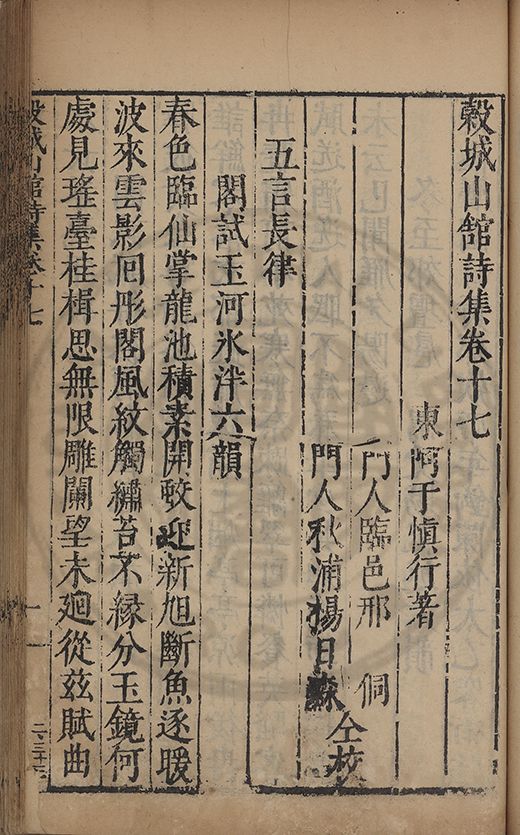 穀城山館詩集卷十七
東阿于慎行著
門人臨邑邢侗
門人秋浦楊日森
仝校
五言長律
閣試玉河氷泮六韻
春色臨仙掌龍池積素開蛟迎新旭斷魚逐暖
波來雲影囘彤閣風紋觸繡苔不緣分玉鏡何
處見瑤臺桂楫思無限雕闌望未廻從茲賦曲
穀城山館詩集卷十七
一